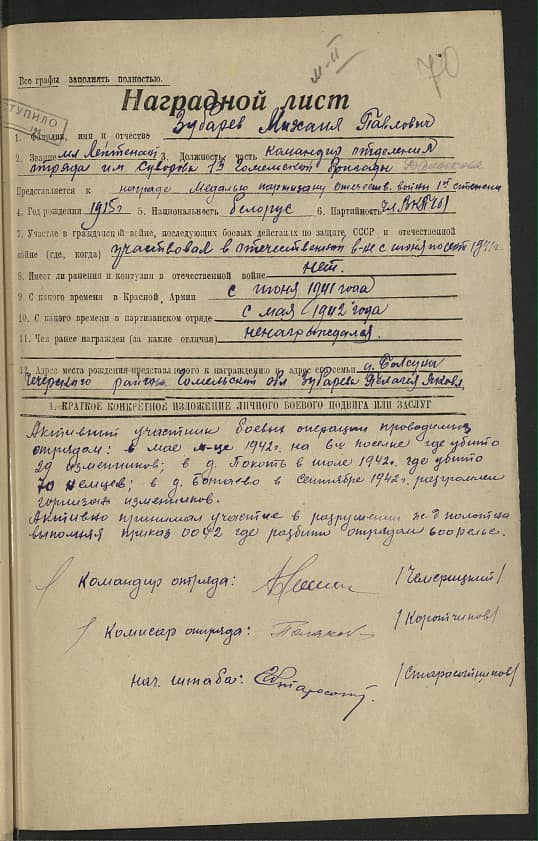 70
м-II
Все графы заполнять полностью.
Наградной лист
1. Фамилия, имя и отчество Зубарев Михаил Павлович
2. Звание мл Лейтенант 3. Должность, часть командир отделения
отряда им Суворова 1й Гомельской бригады
Представляется к награде Медалью партизану отечеств. войны 1й степени
4. Год рождения 1915г 5. Национальность Белорус 6. Партийность чл ВКП(б)
7. Участие в гражданской войне, последующих боевых действиях по защите СССР и отечественной
войне (где, когда) участвовал в отечественной в-не с июня по сент 1941г.
8. Имеет ли ранения и контузии в отечественной войне нет.
9. С какого времени в Красной Армии с июня 1941 года
10. С какого времени в партизанском отряде с мая 1942 года
11. Чем ранее награжден (за какие отличия) ненагрыждался.
12. Адрес места рождения представляемого к награждению и адрес его семьи д.
Чечерского района Гомельской обл Зубарева Пелагея
1. КРАТКОЕ КОНКРЕТНОЕ ИЗЛОЖЕНИЕ ЛИЧНОГО БОЕВОГО ПОДВИГА ИЛИ ЗАСЛУГ
Активный участник боевых операции проводимых
отрядам: в мае м-це 1942г. на поселке где убито
29 изменников; в д. Покоть в июле 1942г. где убито
70 немцев; в д. Ботвево в Сентябре 1942г. разгромлен
горнизон изменников.
Активно принимал участие в разрушении ж.д полотна
выполняя приказ 0042 где разбито отрядам 600 рельс.
Командир отряда: /Чемерицкий/
Комисар отряда: /Коротчиков/
нач. штаба: /Старасотников/